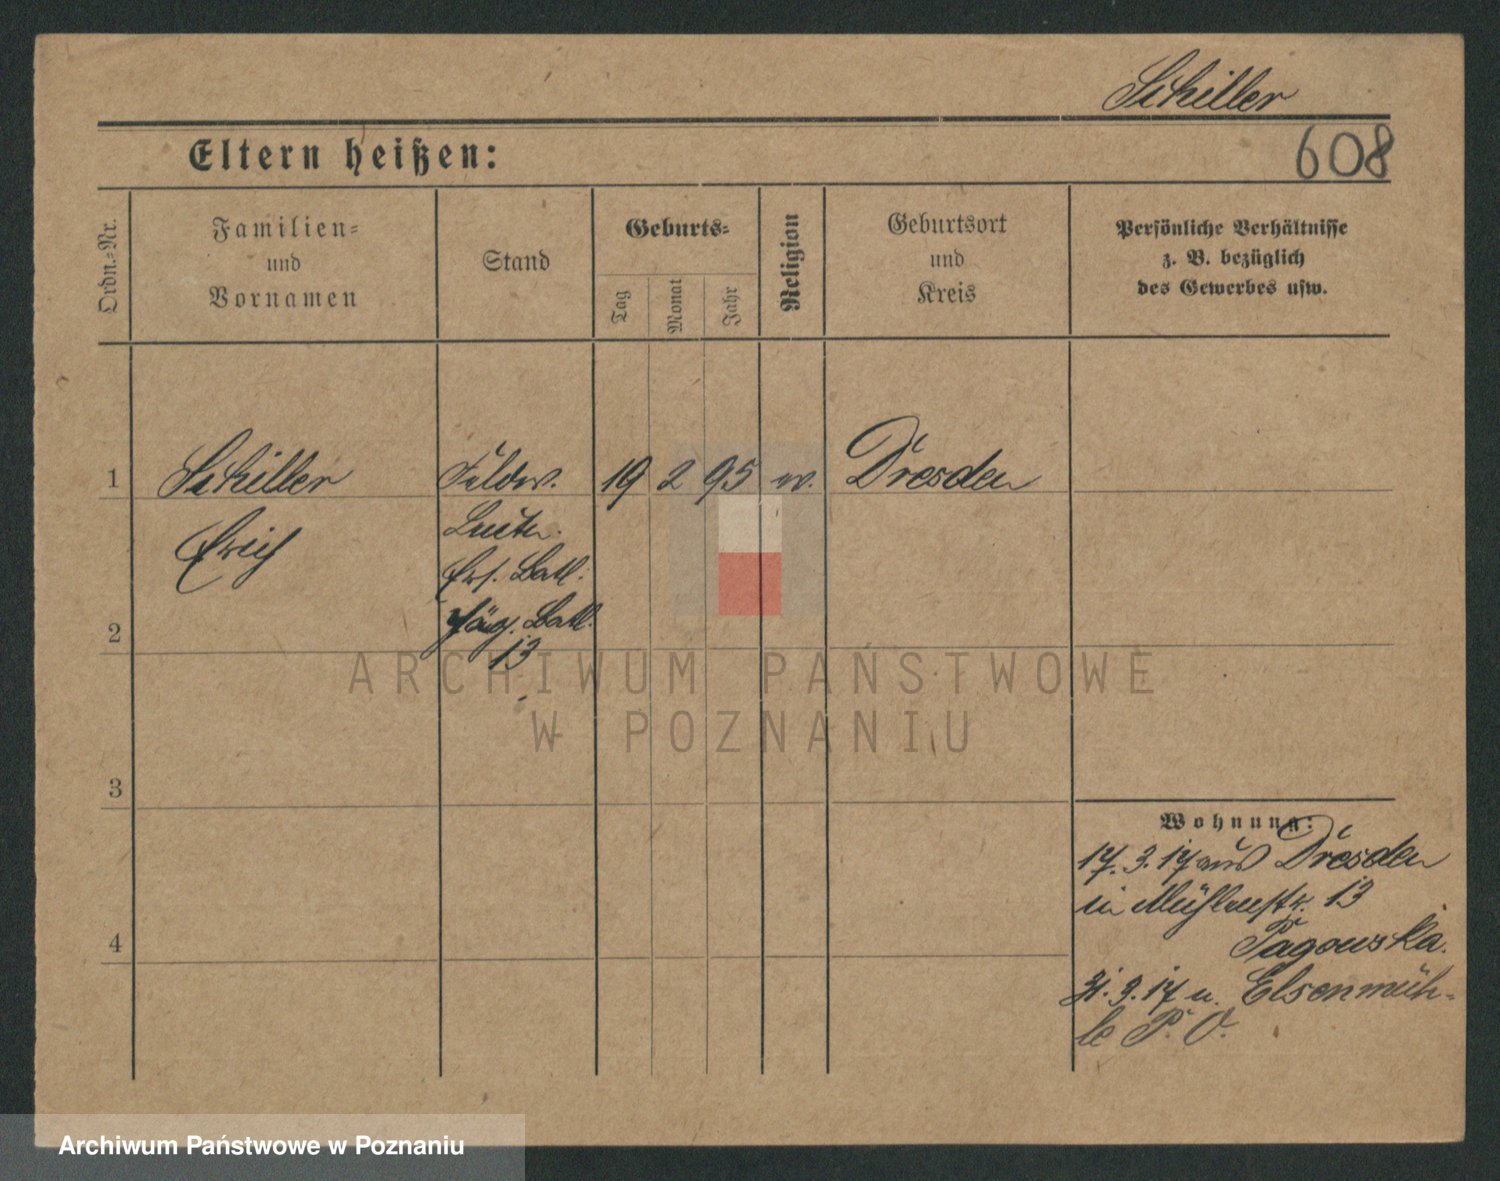 Schiller
608
Eltern heißen:
Ordn.-Nr.
Familien-
und
Vornamen
Stand
Geburts-
Tag
Monat
Jahr
Religion
Geburtsort
und
Kreis
Persönliche Verhältnisse
z. B. bezüglich
des Gewerbes usw.
1
Schiller
Feldw.
19
2
95
ev.
Dresden
Erich
Leutn.
Ers. Batl.
Jäg. Batl.
13
2
3
4
Wohnung:
17. 3. 17 aus Dresden
in Mühlenstr. 13
Pagowska.
31. 3. 17 n. Elsenmüh-
le P. O.
ARCHIWUM PAŃSTWOWE
W POZNANIU
Archiwum Państwowe w Poznaniu